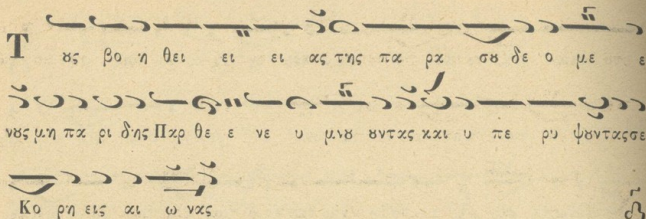 Τ ȣς βο η θει ει ει ας της πα ρα σȣ δε ο με ε
νȣς μη πα ρι δης Παρ θε ε νε υ μνȣ ȣντας και υ πε ρυ ψȣντας σε
Κο ρη εις αι ω νας